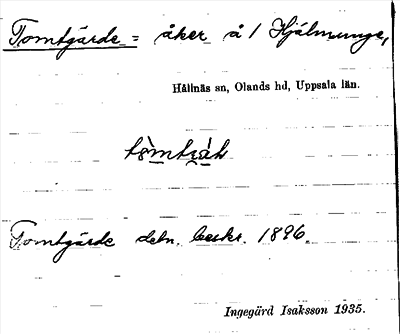 Tomtgärde = åker å / Hjälmunge,
Hållnäs sn, Olands hd, Uppsala län.
Tomtgärde detn. beskr. 1896.
Ingegärd Isaksson 1935.